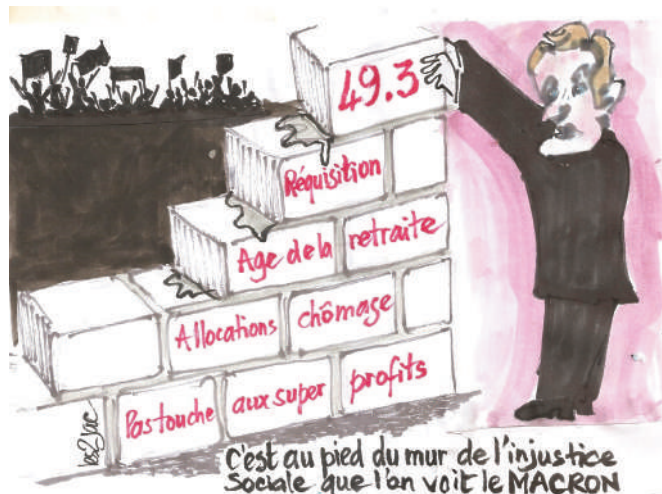 49.3
Réquisition
Age de la retraite
Allocations chômage
Pas touche aux super profits
les2Jac
C'est au pied du mur de l'injustice
Sociale que l'on voit le MACRON